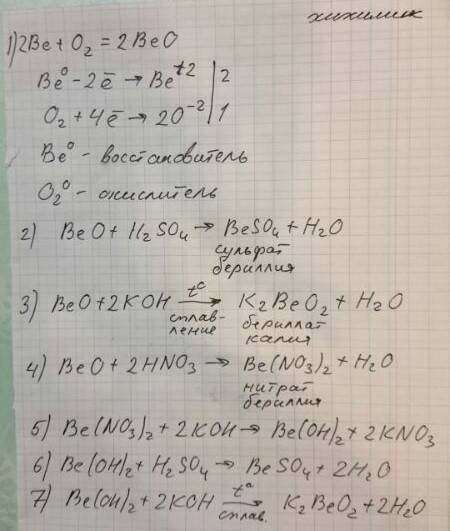 хихимик
1) 2Be + O₂ = 2BeO
Be⁰ - 2ē → Be⁺² | 2
O₂ + 4ē → 2O⁻² | 1
Be⁰ - восстановитель
O₂⁰ - окислитель
2) BeO + H₂SO₄ → BeSO₄ + H₂O
сульфат
бериллия
3) BeO + 2KOH →(t°) K₂BeO₂ + H₂O
сплав- бериллат
ление калия
4) BeO + 2HNO₃ → Be(NO₃)₂ + H₂O
нитрат
бериллия
5) Be(NO₃)₂ + 2KOH → Be(OH)₂ + 2KNO₃
6) Be(OH)₂ + H₂SO₄ → BeSO₄ + 2H₂O
7) Be(OH)₂ + 2KOH →(t°) K₂BeO₂ + 2H₂O
сплав.